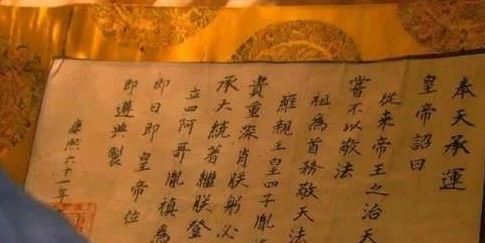 奉天承運
皇帝詔曰
從来帝王之治天
當不以敬法
祖為首務敬天法
雍親王皇四子胤
貴重深肖朕躬必
承大統著繼朕登
立四阿哥胤禛為
即日即皇帝位
即遵典製
康熙六十一年